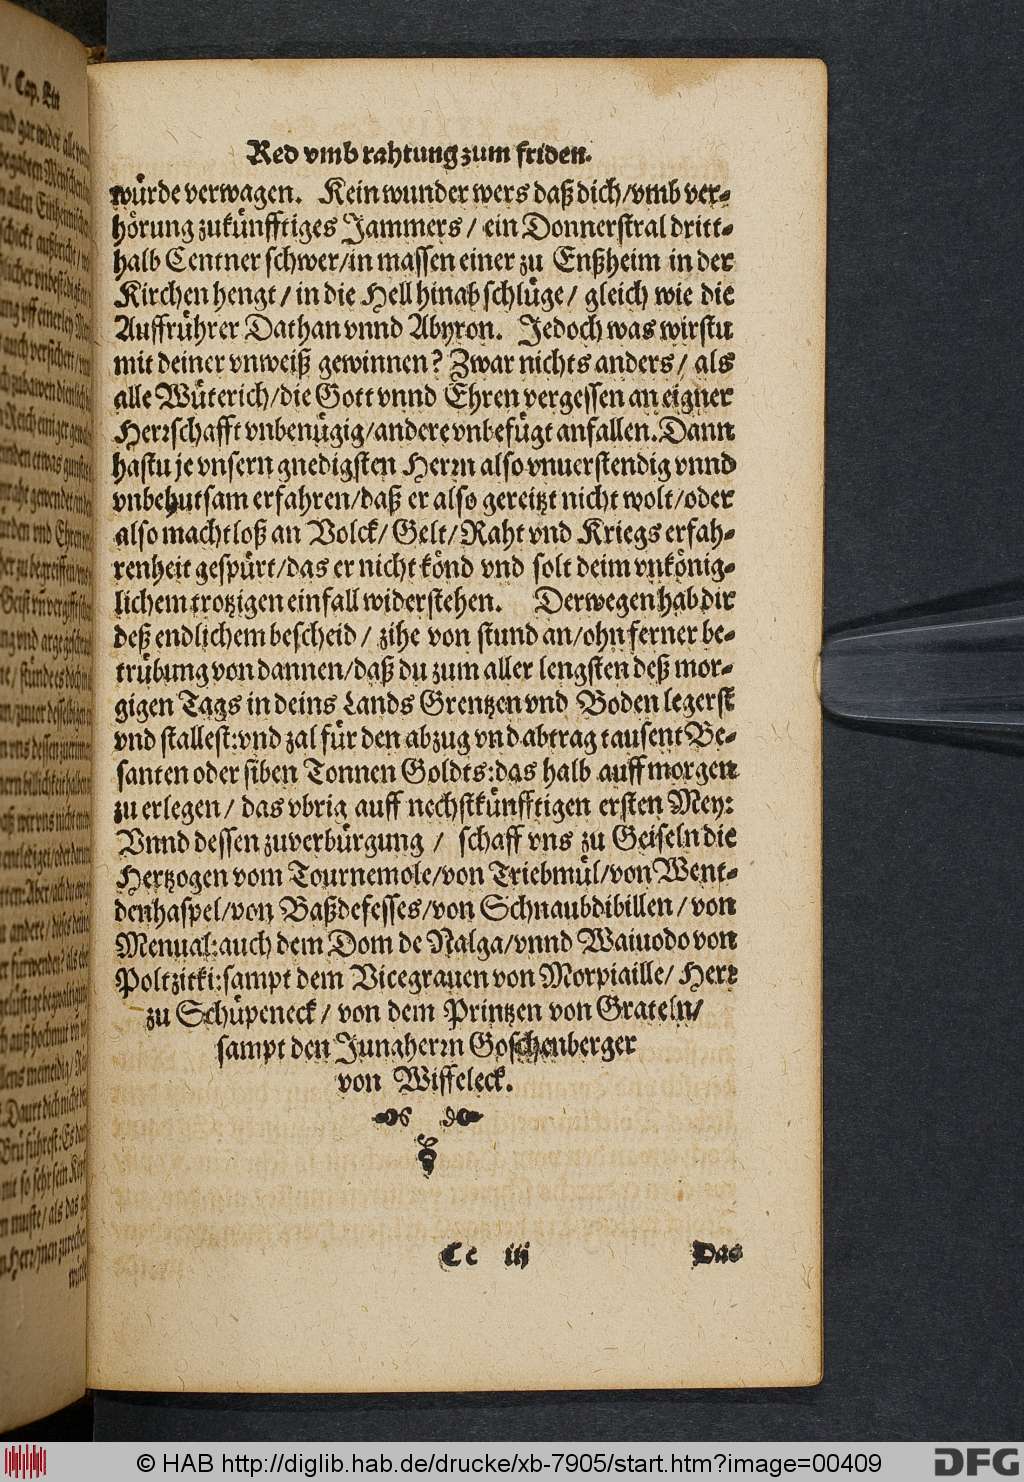 Red vmb rahtung zum friden.
würde verwagen. Kein wunder wers daß dich/vmb ver-
hörung zukünfftiges Jammers/ ein Donnerstral dritt-
halb Centner schwer/in massen einer zu Enßheim in der
Kirchen hengt/ in die Hell hinab schlüge/ gleich wie die
Auffrührer Dathan vnnd Abyron. Jedoch was wirstu
mit deiner vnweiß gewinnen? Zwar nichts anders/ als
alle Wüterich/die Gott vnnd Ehren vergessen an eigner
Herrschafft vnbenügig/andere vnbefügt anfallen. Dann
hastu je vnsern gnedigsten Herrn also vnuerstendig vnnd
vnbehutsam erfahren/daß er also gereitzt nicht wolt/oder
also machtloß an Volck/ Gelt/ Raht vnd Kriegs erfah-
renheit gespürt/das er nicht könd vnd solt deim vnkönig-
lichem trotzigen einfall widerstehen. Derwegen hab dir
deß endlichem bescheid/ zihe von stund an/ohn ferner be-
trübung von dannen/daß du zum aller lengsten deß mor-
gigen Tags in deins Lands Grentzen vnd Boden legerst
vnd stallest:vnd zal für den abzug vnd abtrag tausent Be-
santen oder siben Tonnen Goldts:das halb auff morgen
zu erlegen/ das vbrig auff nechstkünfftigen ersten Mey:
Vnnd dessen zuverbürgung/ schaff vns zu Geiseln die
Hertzogen vom Tournemole/von Triebmül/von Went-
denhaspel/von Baßdefesses/von Schnaubdibillen/ von
Menual:auch dem Dom de Nalga/vnnd Waiuodo von
Poltzitki:sampt dem Vicegrauen von Morpiaille/ Hertz
zu Schüpeneck/ von dem Printzen von Grateln/
sampt den Junaherrn Goschenberger
von Wiffeleck.
Cc iij Das
© HAB http://diglib.hab.de/drucke/xb-7905/start.htm?image=00409
DFG